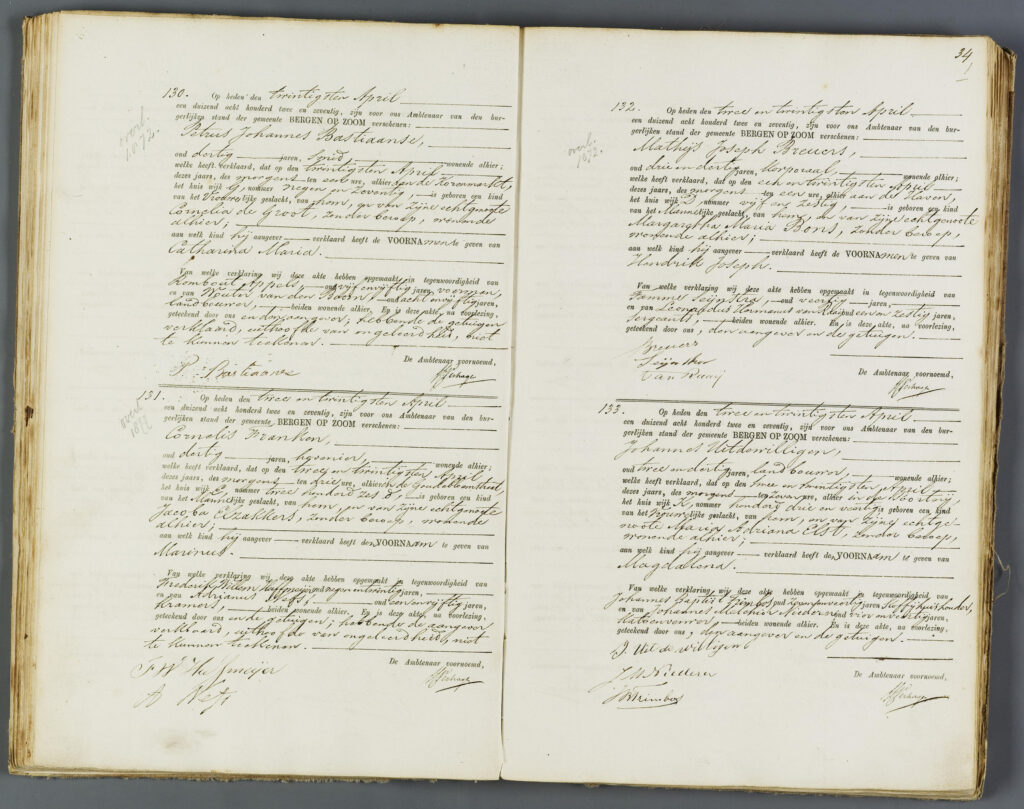 130. Op heden den twintigsten April
een duizend acht honderd twee en zeventig, zijn voor ons Ambtenaar van den bur-
gerlijken stand der gemeente BERGEN OP ZOOM verschenen:
Petrus Johannes Bastiaanse,
oud dertig jaren, Smid, wonende alhier;
welke heeft verklaard, dat op den twintigsten April
dezes jaars, des morgens ten een ure, alhier aan de Korenmarkt,
het huis wijk G, nommer negen en zeventig, is geboren een kind
van het Vrouwelijke geslacht, van hem, en van zijne echtgenoote
Cornelia de Groot, zonder beroep, wonende
alhier;
aan welk kind hij aangever verklaard heeft de VOORNAmen te geven van
Catharina Maria.
Van welke verklaring wij deze akte hebben opgemaakt in tegenwoordigheid van
Rombout Appels, oud vijf en vijftig jaren, voerman,
en van Wouter van den Boom, oud acht en vijftig jaren,
landbouwer, beiden wonende alhier. En is deze akte, na voorlezing,
geteekend door ons en den aangever; hebbende de getuigen
verklaard, uithoofde van ongeleerdheid, niet
te kunnen teekenen.
De Ambtenaar voornoemd,
P. Bastiaanse
overl. 1872.
131. Op heden den twee en twintigsten April
een duizend acht honderd twee en zeventig, zijn voor ons Ambtenaar van den bur-
gerlijken stand der gemeente BERGEN OP ZOOM verschenen:
Cornelis Franken,
oud dertig jaren, hovenier, wonende alhier;
welke heeft verklaard, dat op den twee en twintigsten April
dezes jaars, des morgens ten drie ure, alhier in de
het huis wijk E, nommer twee honderd zes, is geboren een kind
van het Mannelijke geslacht, van hem, en van zijne echtgenoote
Jacoba Elzakkers, zonder beroep, wonende
alhier;
aan welk kind hij aangever verklaard heeft den VOORNAam te geven van
Marinus.
Van welke verklaring wij deze akte hebben opgemaakt in tegenwoordigheid van
Frederik Willem oud negen en twintig jaren,
en van Adrianus oud een en vijftig jaren,
Kramers, beiden wonende alhier. En is deze akte, na voorlezing,
geteekend door ons en de getuigen; hebbende de aangever
verklaard, uithoofde van ongeleerdheid, niet
te kunnen teekenen.
De Ambtenaar voornoemd,
F W
A
overl
34
132. Op heden den twee en twintigsten April
een duizend acht honderd twee en zeventig, zijn voor ons Ambtenaar van den bur-
gerlijken stand der gemeente BERGEN OP ZOOM verschenen:
Mathijs Joseph Breuers,
oud drie en dertig jaren, Korporaal, wonende alhier;
welke heeft verklaard, dat op den een en twintigsten April
dezes jaars, des morgens ten een ure, alhier aan de Haven,
het huis wijk nommer vijf en zestig, is geboren een kind
van het Mannelijke geslacht, van hem, en van zijne echtgenoote
Margaretha Maria Bons, zonder beroep,
wonende alhier;
aan welk kind hij aangever verklaard heeft de VOORNAmen te geven van
Hendrik Joseph.
Van welke verklaring wij deze akte hebben opgemaakt in tegenwoordigheid van
oud veertig jaren,
en van Leonardus Hermanus van oud een en zestig jaren,
Sergeants, beiden wonende alhier. En is deze akte, na voorlezing,
geteekend door ons, den aangever en de getuigen.
De Ambtenaar voornoemd,
Breuers
overl. 1872.
133. Op heden den twee en twintigsten April
een duizend acht honderd twee en zeventig, zijn voor ons Ambtenaar van den bur-
gerlijken stand der gemeente BERGEN OP ZOOM verschenen:
Johannes Uitdewilligen,
oud twee en dertig jaren, landbouwer, wonende alhier;
welke heeft verklaard, dat op den twee en twintigsten April
dezes jaars, des morgens ten zeven ure, alhier in de
het huis wijk K, nommer honderd drie en veertig is geboren een kind
van het Vrouwelijke geslacht, van hem, en van zijne echtge-
noote Maria Adriana Elst, zonder beroep,
wonende alhier;
aan welk kind hij aangever verklaard heeft den VOORNAam te geven van
Magdalena.
Van welke verklaring wij deze akte hebben opgemaakt in tegenwoordigheid van
Johannes Baptist Trimbos, oud zeven en veertig jaren, koffijhuishouder,
en van Johannes Melchior Niederer, oud vier en veertig jaren,
katoenverver, beiden wonende alhier. En is deze akte, na voorlezing,
geteekend door ons, den aangever en de getuigen.
De Ambtenaar voornoemd,
J. Uit de willigen
J M Niederer
J B Trimbos